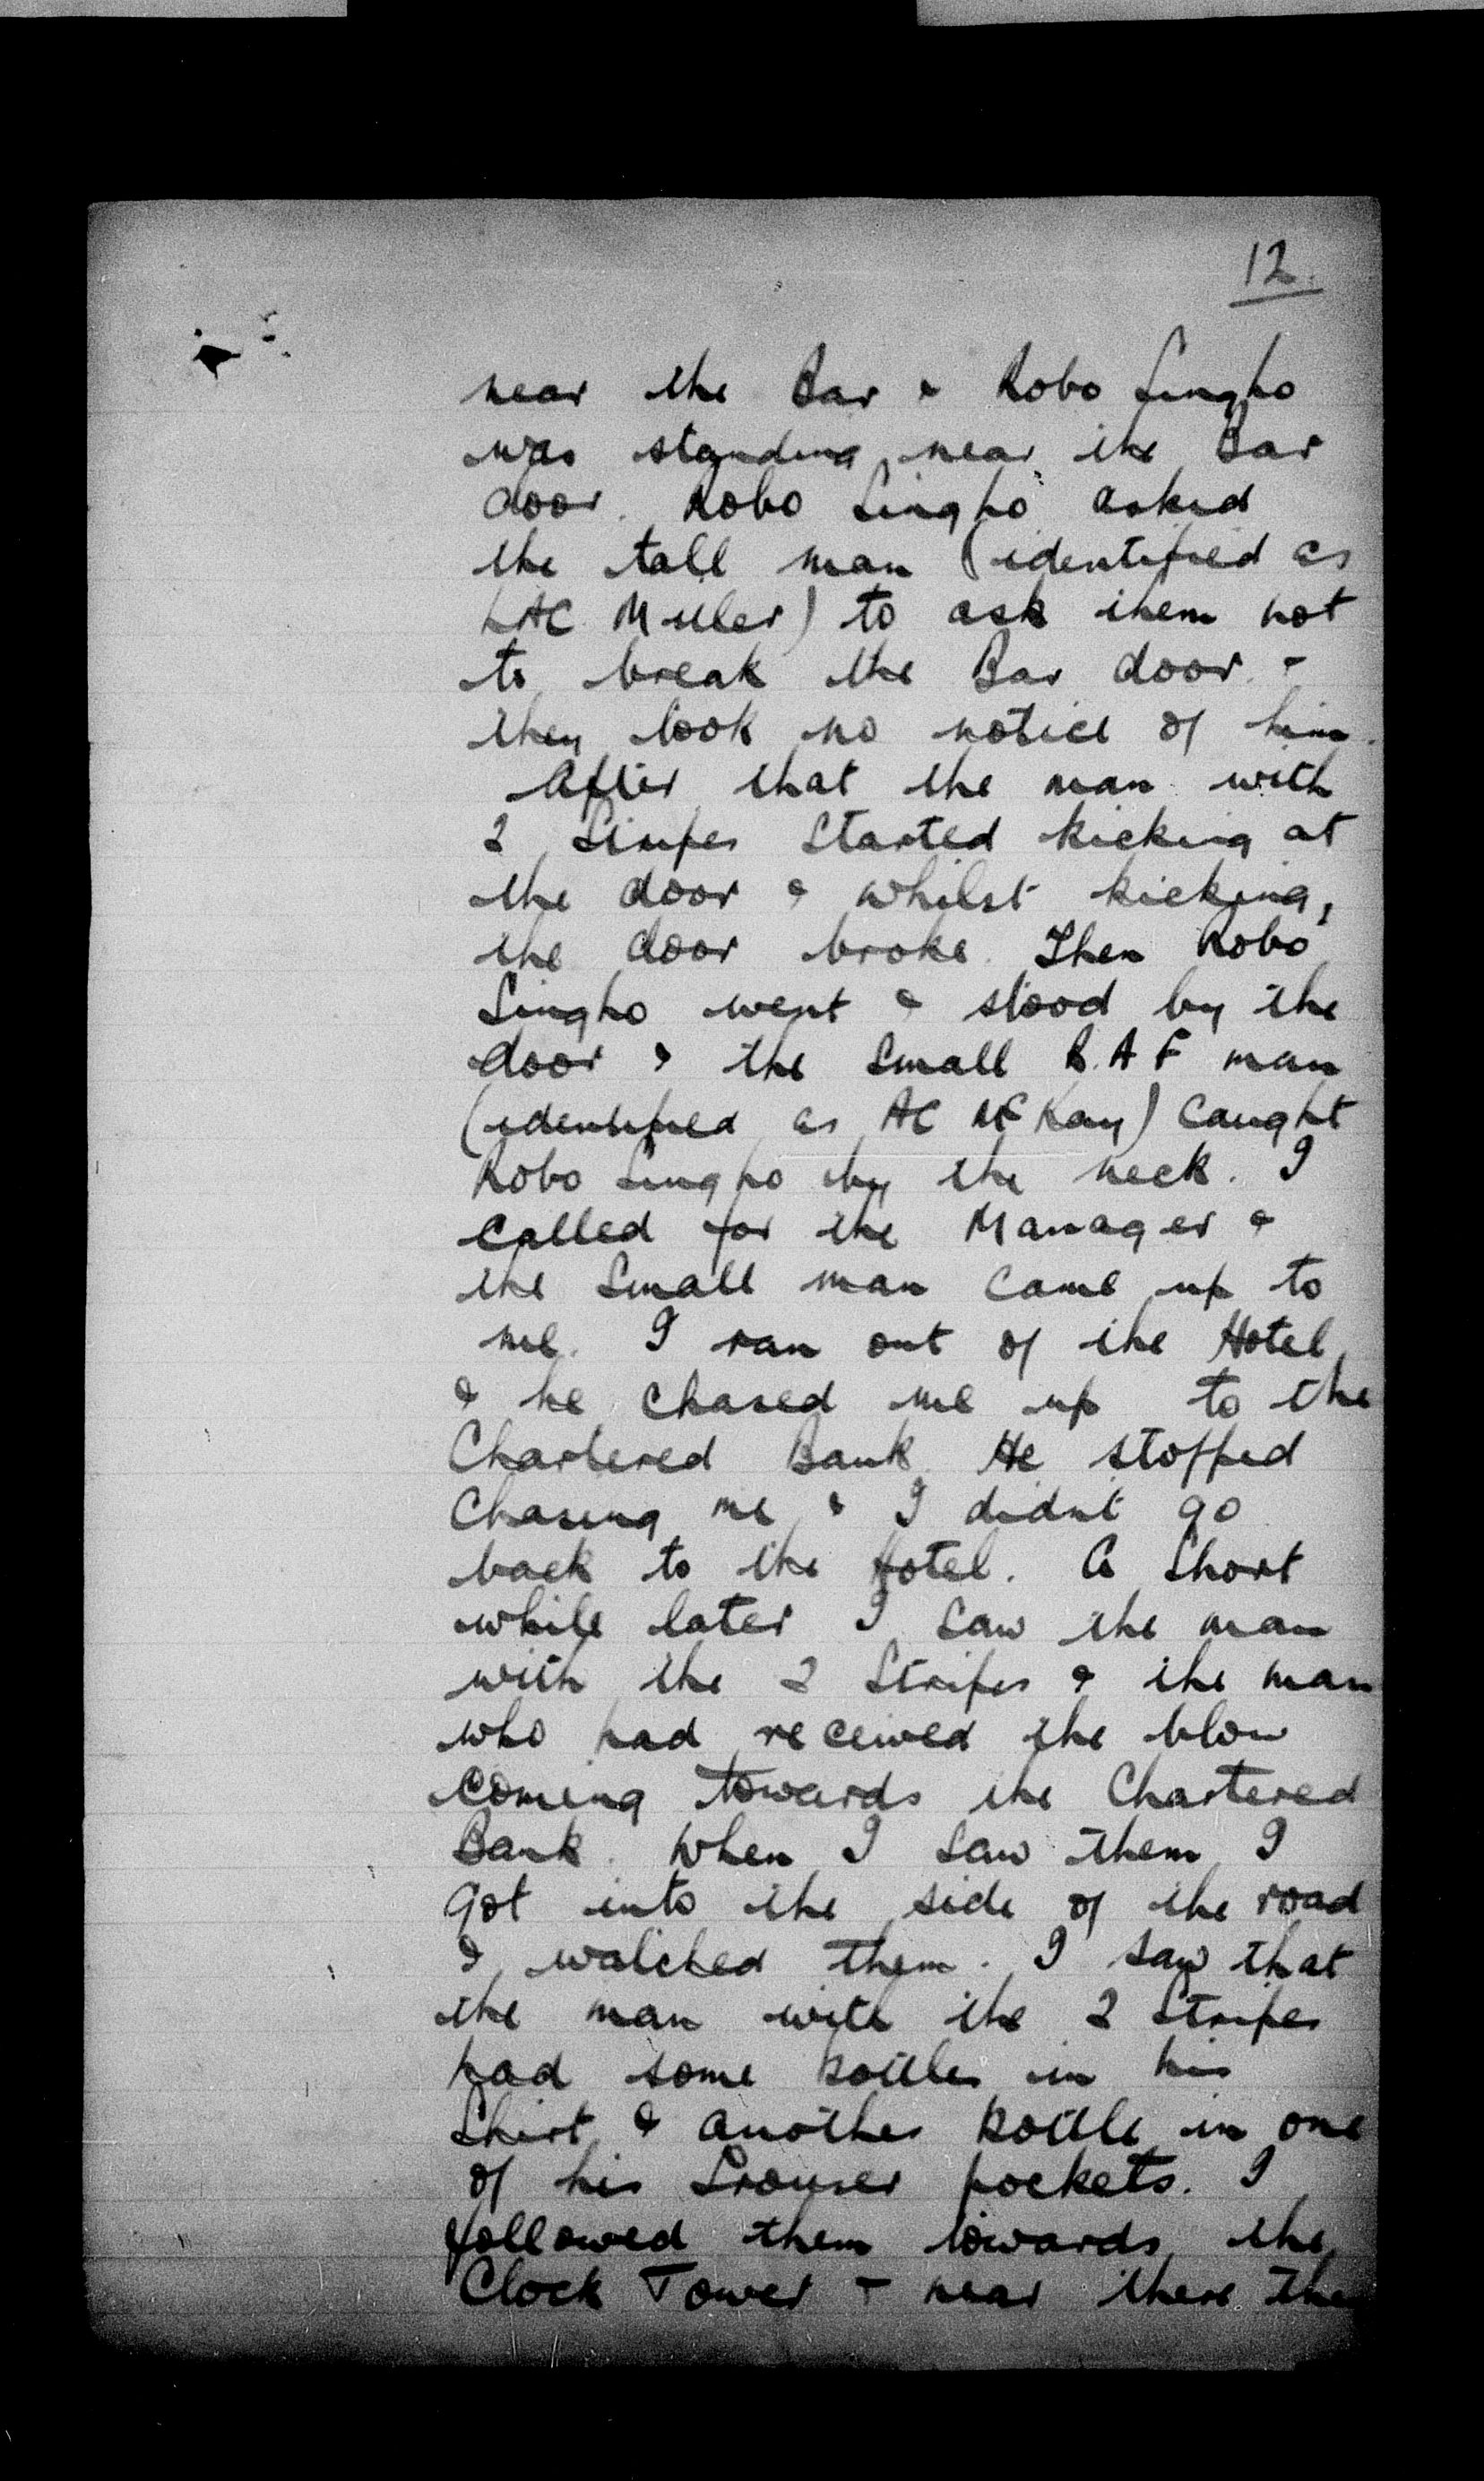 12.
near the Bar & Robo Singho
was standing near the Bar
door. Robo Singho asked
the tall man (identified as
LAC Miller) to ask them not
to break the Bar door &
they took no notice of him.
After that the man with
2 Stripes started kicking at
the door & whilst kicking,
the door broke. Then Robo
Singho went & stood by the
door & the small R.A.F man
(identified as AC McKay) caught
Robo Singho by the neck. I
called for the Manager &
the small man came up to
me. I ran out of the Hotel
& he chased me up to the
Chartered Bank. He stopped
chasing me & I didnt go
back to the Hotel. A short
while later I saw the man
with the 2 Stripes & the man
who had received the blow
coming towards the Chartered
Bank. When I saw them I
got into the side of the road
& watched them. I saw that
the man with the 2 Stripes
had some bottles in his
shirt & another bottle in one
of his trouser pockets. I
followed them towards the
Clock Tower & near there the